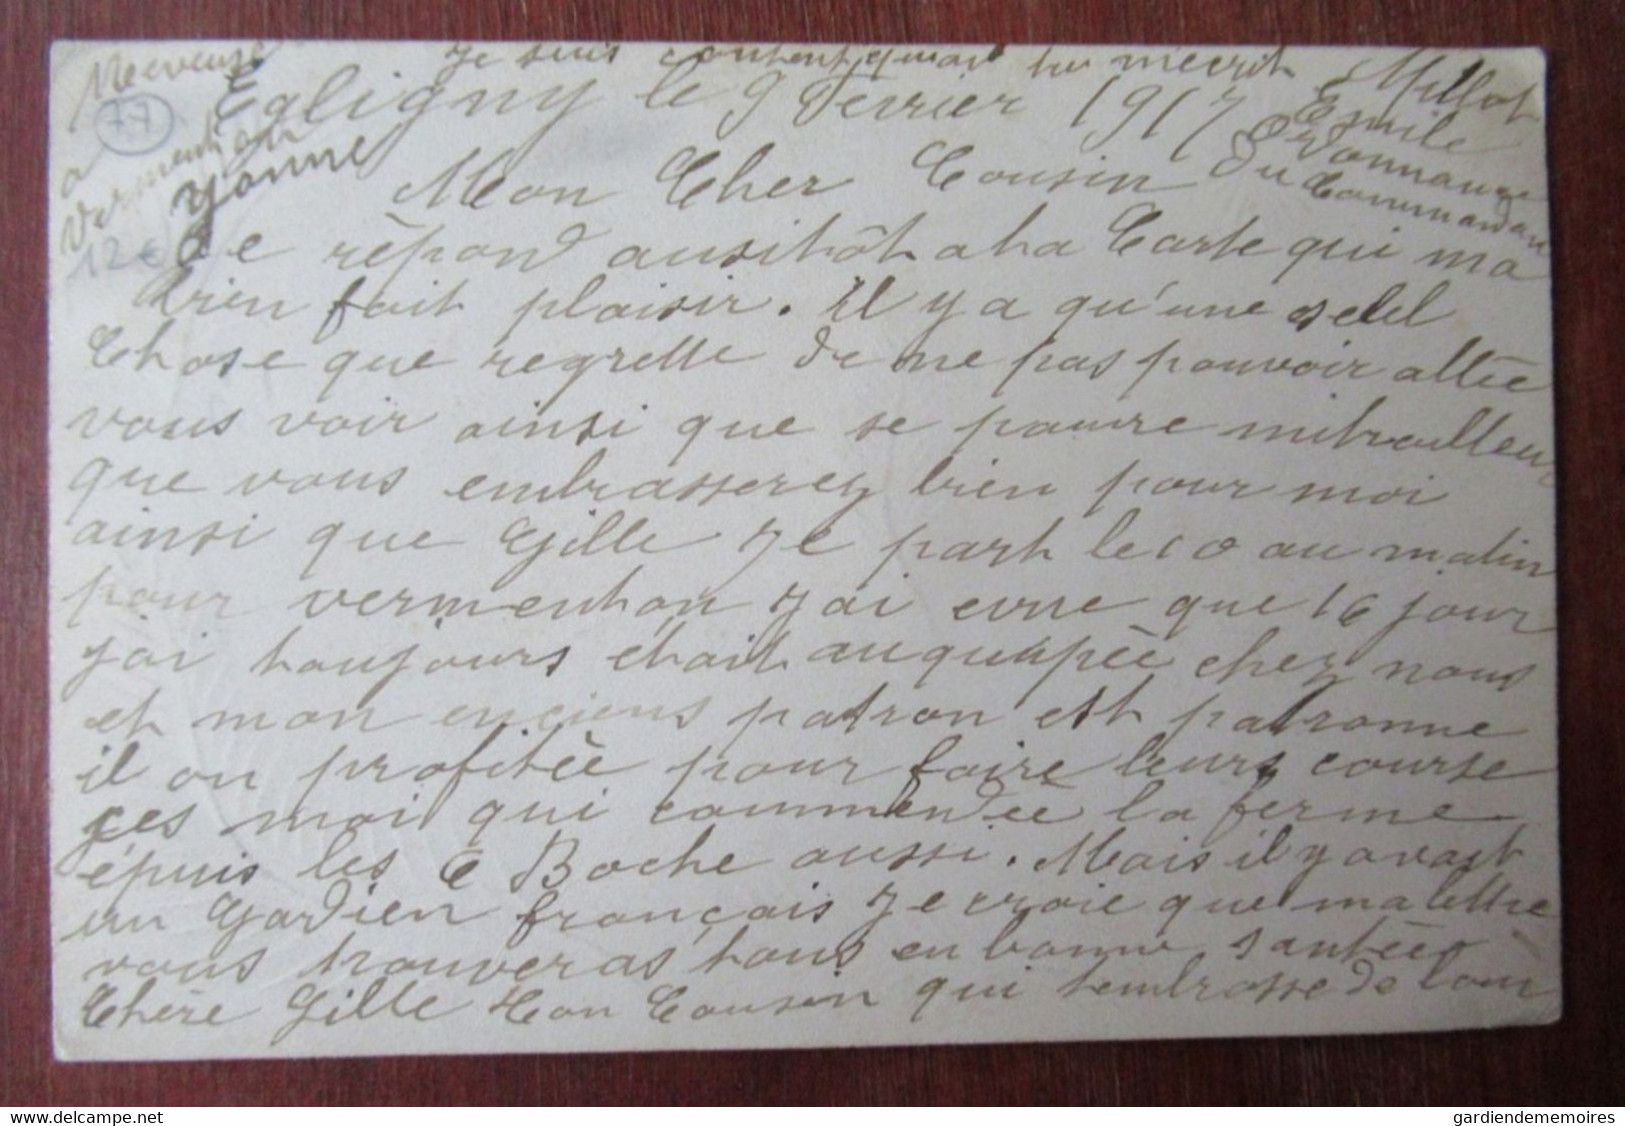 je suis content quand tu m'ecrit
Egligny le 9 Fevrier 1917
Millot
Emile
Ordonnance
du
Commandan
77
a
Vermenton
Yonne
12€
Mon Cher Cousin
Je rèpond ausitôt a ta Carte qui ma
bien fait plaisir. Il y a qu'une seul
Chose que regrette de ne pas pouvoir allèe
vous voir ainsi que se pauvre mitrailleur
que vous embrasserez bien pour moi
ainsi que Gille Je part le 10 au matin
pour vermenton J'ai eue que 16 jour
j'ai toujours était auquupèe chez nous
et mon enciens patron est patronne
il on profitèe pour faire leurs course
ces moi qui commendèe la ferme
épuis les Boche aussi. Mais il y avait
un Gardien français Je croie que ma lettre
vous trouveras tous en bonne santèe
Chère Gille ton Cousin qui t'embrasse de loin
gardiendememoires
delcampe.net